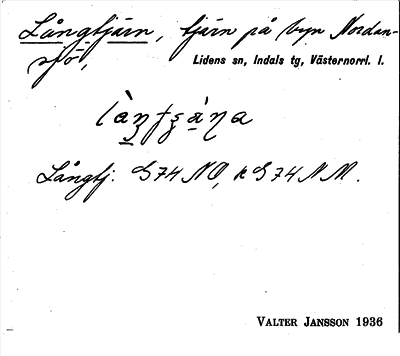 Långtjärn, tjärn på byn Nordan-
sjö,
Lidens sn, Indals tg, Västernorrl. l.
Långtj: G74 NO, k G74 NM.
VALTER JANSSON 1936